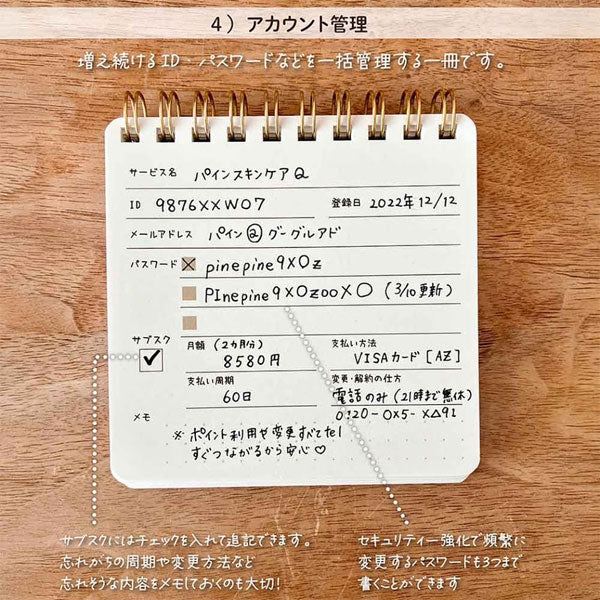 4）アカウント管理
増え続けるID・パスワードなどを一括管理する一冊です。
サービス名 パインスキンケアQ
ID 9876XXW07 登録日 2022年12/12
メールアドレス パイン@グーグルアド
パスワード pinepine9X0z
PInepine9X0zooXO (3/10更新)
サブスク 月額 (2ヵ月分) 支払い方法
8580円 VISAカード[AZ]
支払い周期 変更・解約の仕方
60日 電話のみ(21時まで無休)
メモ 0120-0X5-XΔ91
※ポイント利用や変更すべてtel
すぐつながるから安心♡
サブスクにはチェックを入れて追記できます。
忘れがちの周期や変更方法など
忘れそうな内容をメモしておくのも大切!
セキュリティー強化で頻繁に
変更するパスワードも3つまで
書くことができます